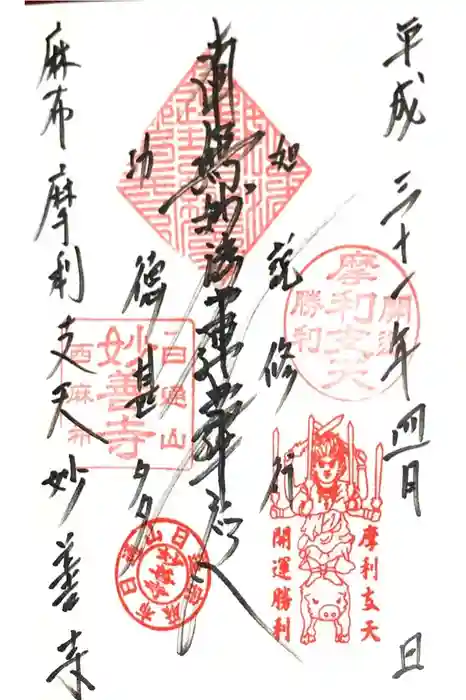 平成三十一年四月 日
如説修行
南無妙法蓮華経
功德甚多
麻布摩利支天妙善寺
摩利支天
開運
勝利
摩利支天
開運勝利
妙善寺
西麻布